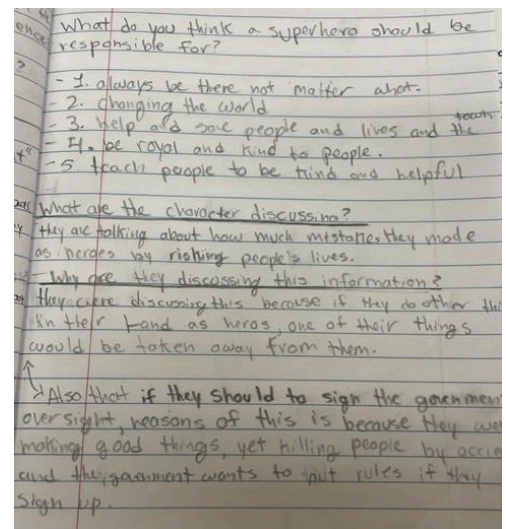 What do you think a superhero should be
responsible for?
- 1. always be there not matter ahat.
- 2. changing the world
- 3. help and save people and lives and the town
- 4. be royal and kind to people.
- 5 teach people to be kind and helpful
What are the character discussing?
they are talking about how much mistakes they made
as heroes by rishing people's lives.
- Why are they discussing this information?
they were discussing this because if they do other
in their hand as heros, one of their things
would be taken away from them.
Also that if they should to sign the
oversight, reasons of this is because they
making good things, yet killing people by
and the government wants to put rules if they
sign up.